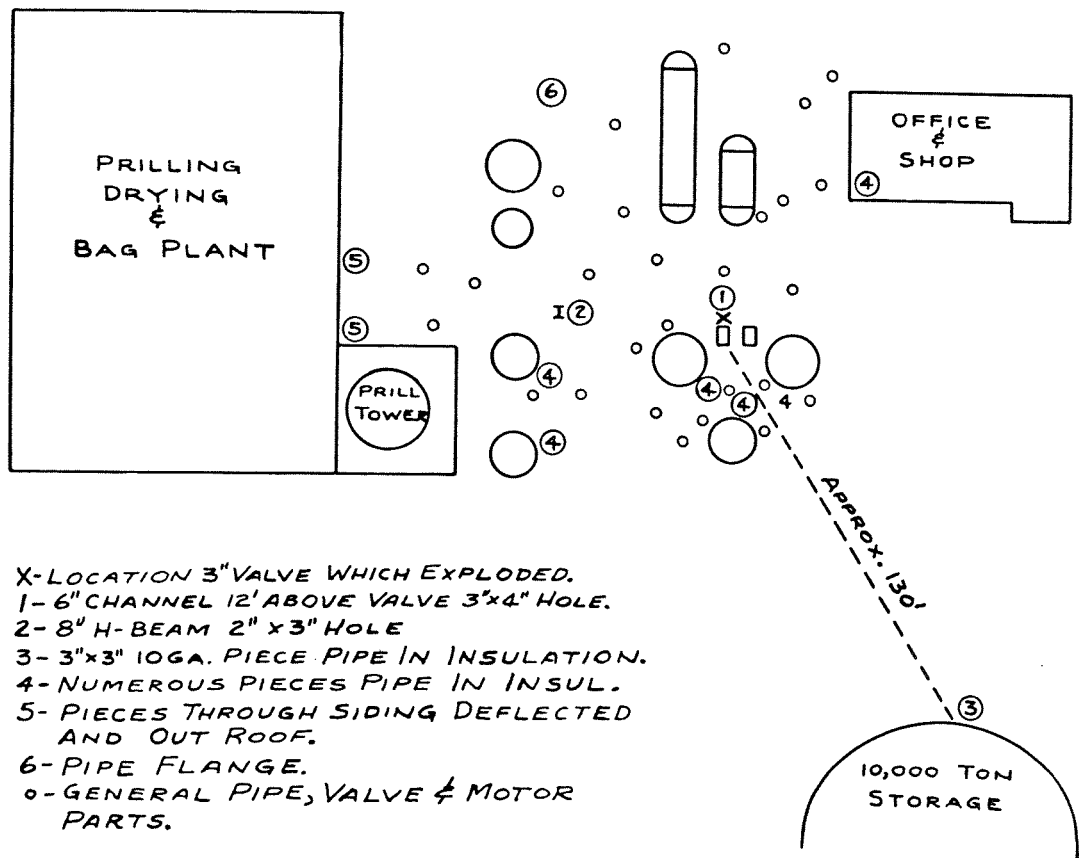 PRILLING
DRYING
&
BAG PLANT
6
OFFICE
&
SHOP
4
5
1
X
I 2
5
PRILL
TOWER
4
4
4
4
4
APPROX. 130'
3
10,000 TON
STORAGE
X-LOCATION 3" VALVE WHICH EXPLODED.
1- 6" CHANNEL 12' ABOVE VALVE 3"X4" HOLE.
2- 8" H-BEAM 2" X 3" HOLE
3- 3"X3" 10GA. PIECE PIPE IN INSULATION.
4- NUMEROUS PIECES PIPE IN INSUL.
5- PIECES THROUGH SIDING DEFLECTED
AND OUT ROOF.
6- PIPE FLANGE.
o- GENERAL PIPE, VALVE & MOTOR
PARTS.